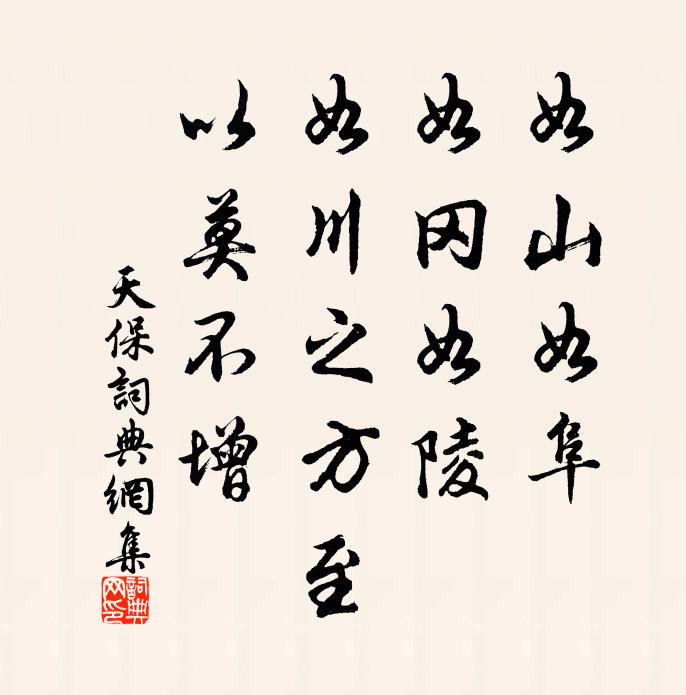 如山如阜
如冈如陵
如川之方至
以莫不增
天保詞典網集
詞典网印